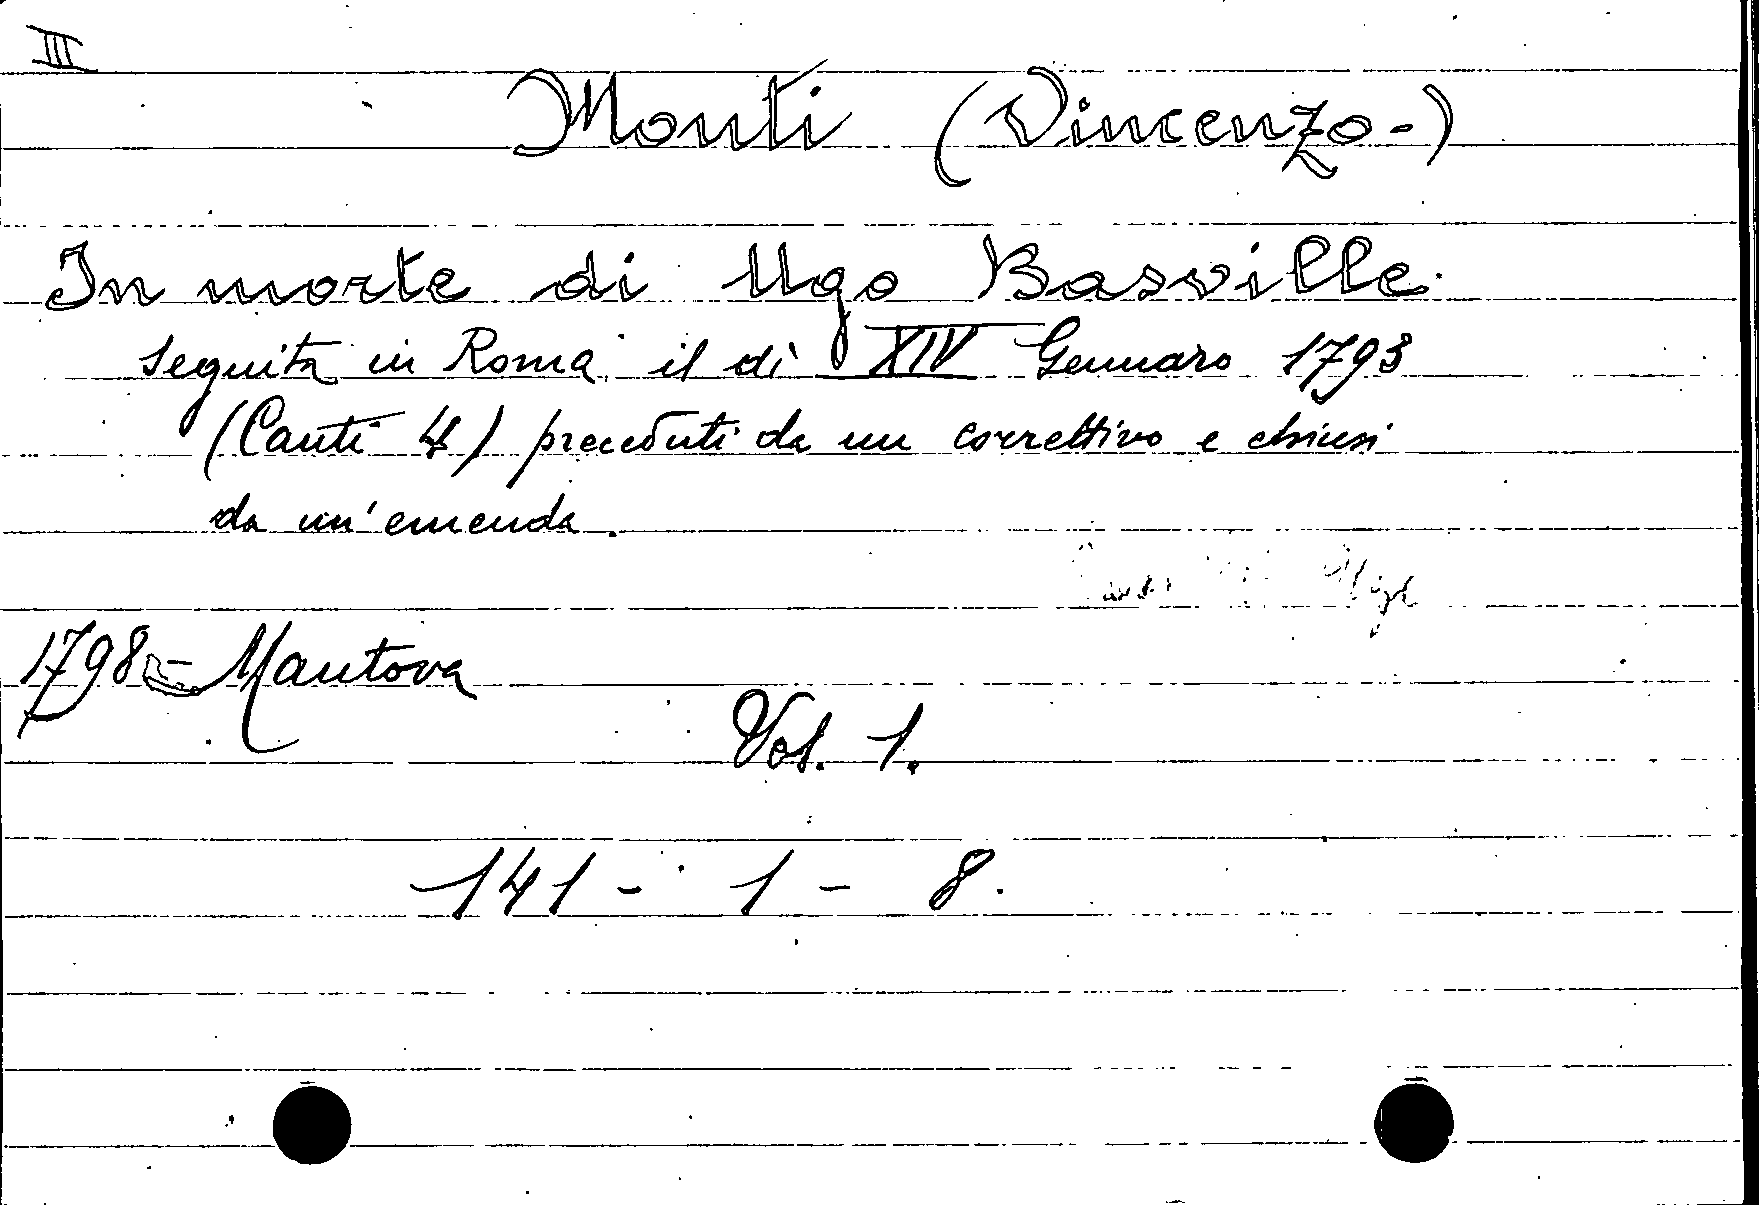 III
Monti (Vincenzo-)
In morte di Ugo Basville.
seguita in Roma il dì XIV Gennaro 1793
(Canti 4) preceduti da un correttivo e chiusi
da un'emenda.
1798 - Mantova
Vol. 1.
141 - 1 - 8.